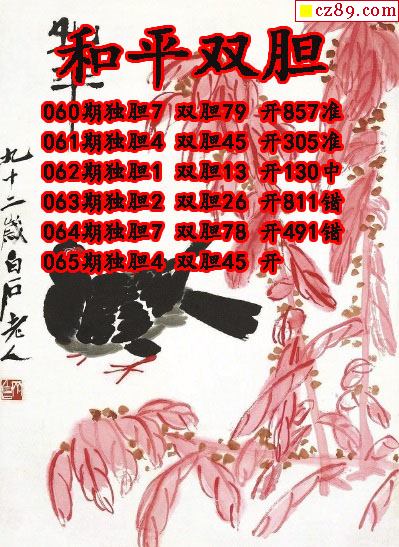 cz89.com
和平双胆
060期独胆7 双胆79 开857准
061期独胆4 双胆45 开305准
062期独胆1 双胆13 开130中
063期独胆2 双胆26 开811错
064期独胆7 双胆78 开491错
065期独胆4 双胆45 开
九十二岁白石老人